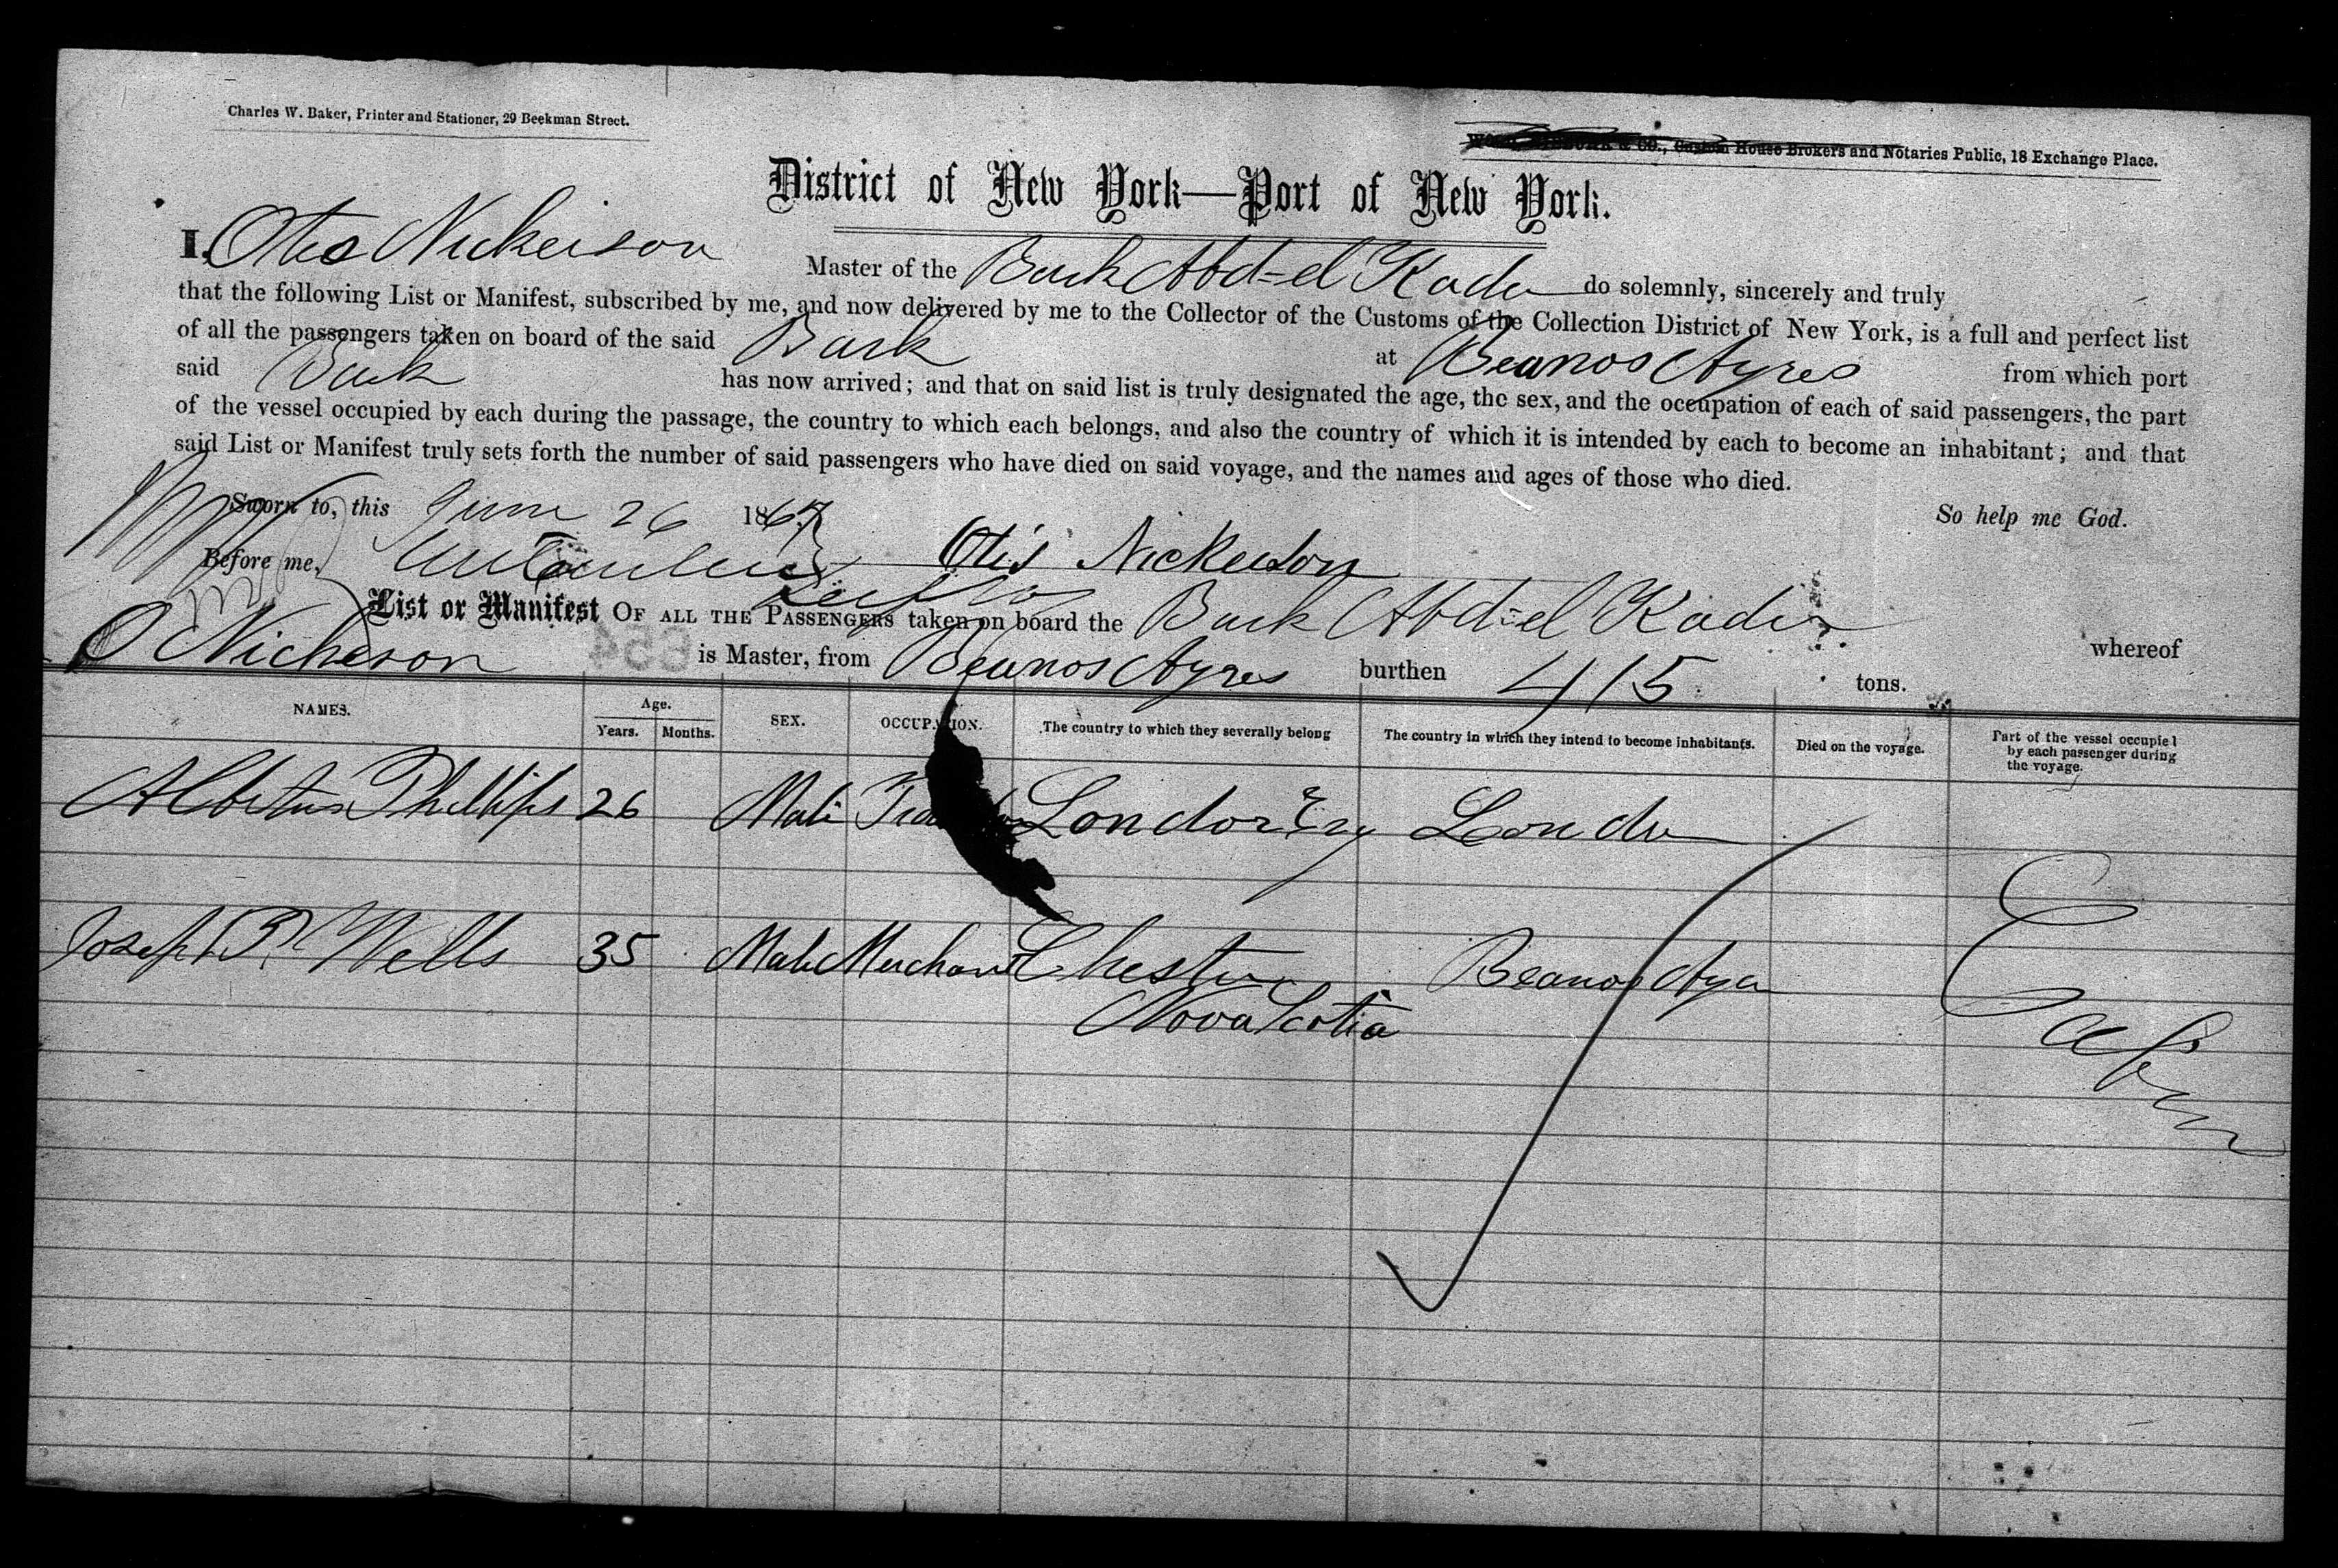 Charles W. Baker, Printer and Stationer, 29 Beekman Street.
& CO., Custom House Brokers and Notaries Public, 18 Exchange Place.
District of New York—Port of New York.
I, Otis Nickerson Master of the Bark Abd=el Kader do solemnly, sincerely and truly
that the following List or Manifest, subscribed by me, and now delivered by me to the Collector of the Customs of the Collection District of New York, is a full and perfect list
of all the passengers taken on board of the said Bark at Beunos Ayres from which port
said Bark has now arrived; and that on said list is truly designated the age, the sex, and the occupation of each of said passengers, the part
of the vessel occupied by each during the passage, the country to which each belongs, and also the country of which it is intended by each to become an inhabitant; and that
said List or Manifest truly sets forth the number of said passengers who have died on said voyage, and the names and ages of those who died.
So help me God.
Sworn to, this June 26 1867
Before me, Otis Nickerson
List or Manifest OF ALL THE PASSENGERS taken on board the Bark Abd=el Kader whereof
O Nickerson is Master, from Beunos Ayres burthen 415 tons.
654
NAMES. Age. Years. Months. SEX. OCCUPATION. The country to which they severally belong The country in which they intend to become inhabitants. Died on the voyage. Part of the vessel occupied by each passenger during the voyage.
Phillips 26 Male London Eng London
Joseph P. Wells 35 Male Merchant Chester Beanos Ayr
Nova Scotia
Cabin